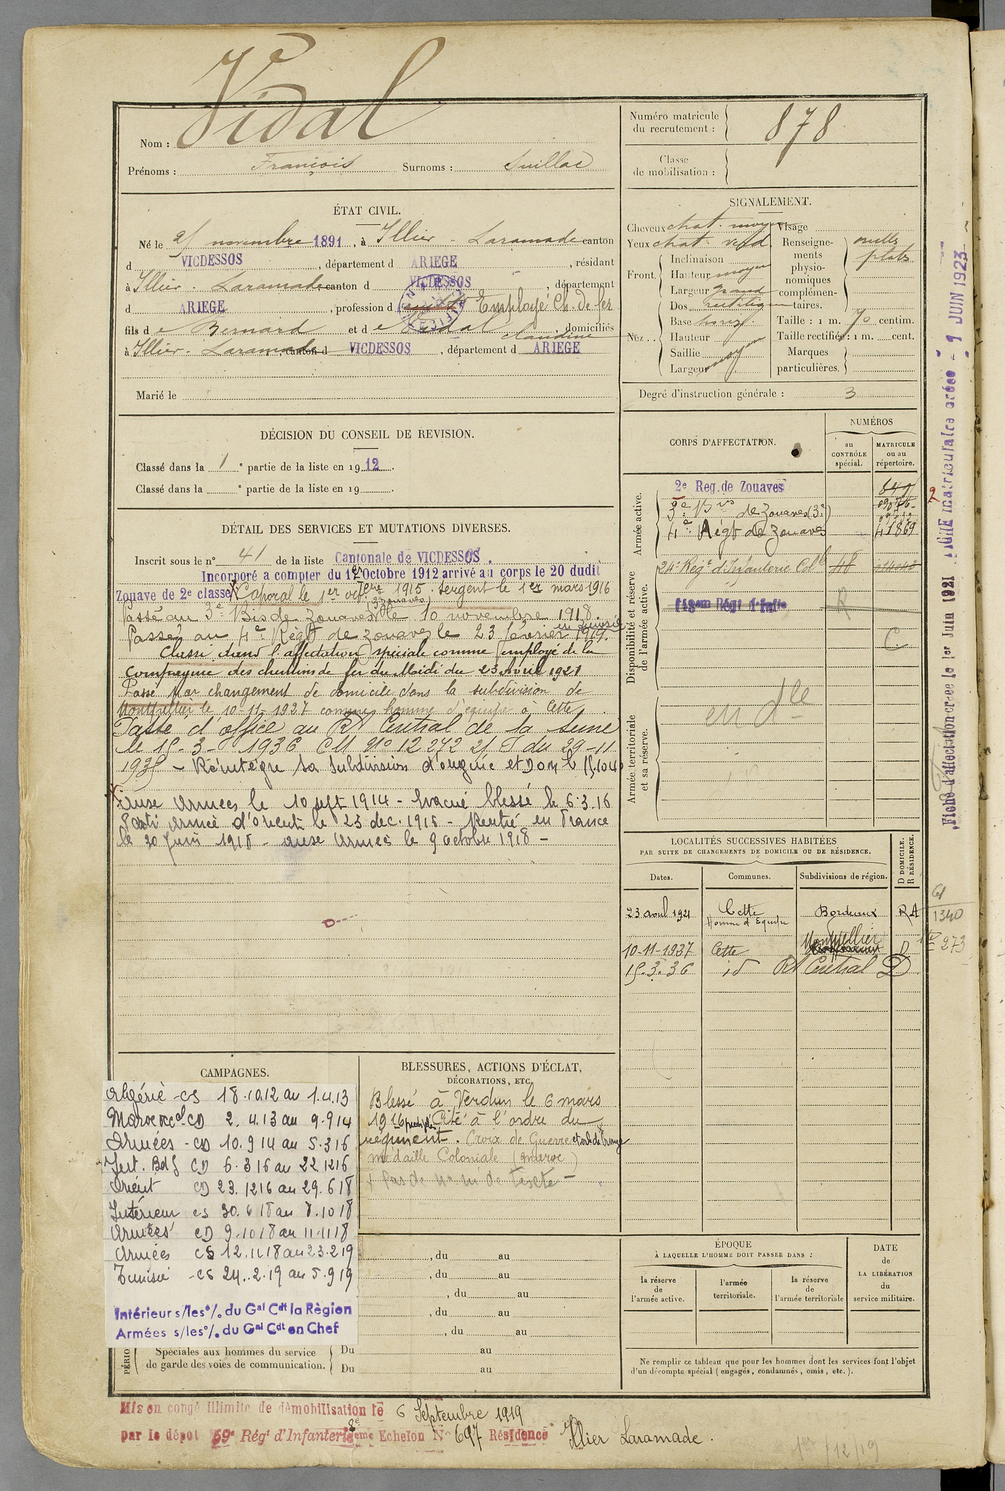 Vidal
Nom :
Prénoms : François Surnoms :
ÉTAT CIVIL.
Né le 21 novembre 1891, à Illier - Laramade canton
d VICDESSOS, département d ARIEGE, résidant
à Illier - Laramade canton d VICDESSOS, département
d ARIEGE, profession d Employé Ch. de fer
fils de Bernard et de Vidal Claudine, domiciliés
à Illier - Laramade canton d VICDESSOS, département d ARIEGE
Marié le
DÉCISION DU CONSEIL DE REVISION.
Classé dans la 1 e partie de la liste en 1912.
Classé dans la e partie de la liste en 19
DÉTAIL DES SERVICES ET MUTATIONS DIVERSES.
Inscrit sous le n° 41 de la liste Cantonale de VICDESSOS.
Incorporé a compter du 1er Octobre 1912 arrivé au corps le 20 dudit
Zouave de 2e classe Caporal le 1er 1915. Sergent le 1er mars 1916
Passé au 3e Bis de Zouaves le 10 novembre 1918
Passé au 4e Régt de Zouaves le 23 février 1919.
Classé dans l'affectation spéciale comme employé de la
Compagnie des chemins de fer du Midi du 23 Avril 1921
Passé par changement de domicile dans la subdivision de
Montpellier le 10-11-1937 comme homme d'équipe à Cette
Passé d'office au RA Central de la Seine
le 15-3-1936 CM N° 12272 du 29-11
1935 - Réintègre sa subdivision d'origine
Aux Armées le 10 sept 1914 - Evacué blessé le 6.3.16
Parti armée d'orient le 23 dec. 1916 - Rentré en France
le 20 Juin 1918 - aux Armées le 9 octobre 1918 -
CAMPAGNES.
Algérie - CS 18.10.12 au 1.4.13
Maroc CD 2.4.13 au 9.9.14
Armées - CD 10.9.14 au 5.3.16
CD 6.3.16 au 22.12.16
Orient CD 23.12.16 au 29.6.18
Intérieur CS 30.6.18 au 8.10.18
Armées CD 9.10.18 au 11.11.18
Armées CS 12.11.18 au 23.2.19
Tunisie - CS 24.2.19 au 5.9.19
Intérieur s/les %. du Gal Cdt la Région
Armées s/les %. du Gal Cdt en Chef
Spéciales aux hommes du service
de garde des voies de communication.
BLESSURES, ACTIONS D'ÉCLAT,
DÉCORATIONS, ETC.
Blessé à Verdun le 6 mars
1916 Cité à l'ordre du
régiment. Croix de Guerre
médaille Coloniale (Maroc)
, du au
, du au
, du au
, du au
, du au
Du au
Du au
Numéro matricule
du recrutement : 878
Classe
de mobilisation :
SIGNALEMENT.
Cheveux chat. moyen
Yeux chat. verd
Front. Inclinaison
Hauteur moyen
Largeur grand
Nez. Dos rectiligne
Base horiz.
Hauteur
Saillie moyen
Largeur
Visage
Renseigne-
ments
physio-
nomiques
complémen-
taires.
Taille : 1 m. 70 centim.
Taille rectifiée : 1 m. cent.
Marques
particulières.
Degré d'instruction générale : 3
CORPS D'AFFECTATION.
NUMÉROS
au
CONTRÔLE
spécial.
MATRICULE
ou au
répertoire.
Armée active.
2e Reg. de Zouaves
3e Bis de Zouaves
4e Régt de Zouaves 41869
Disponibilité et réserve
de l'armée active.
24e Régt d'Infanterie Colle 48
R
C
Armée territoriale
et sa réserve.
LOCALITÉS SUCCESSIVES HABITÉES
PAR SUITE DE CHANGEMENTS DE DOMICILE OU DE RÉSIDENCE.
Dates. Communes. Subdivisions de région. D DOMICILE. R RÉSIDENCE.
23 avril 1921 Cette Bordeaux RA
Homme d'Equipe
10-11-1937 Cette Montpellier D
15.3.36 id RA Central D
1340
273
ÉPOQUE
À LAQUELLE L'HOMME DOIT PASSER DANS :
la réserve
de
l'armée active.
l'armée
territoriale.
la réserve
de
l'armée territoriale
DATE
de
LA LIBÉRATION
du
service militaire.
Ne remplir ce tableau que pour les hommes dont les services font l'objet
d'un décompte spécial (engagés, condamnés, omis, etc.).
Fiche d'affectation créée le 1er Juin 1921
FICHE matriculaire créée - 1 JUIN 1923
Mis en congé illimité de démobilisation le 6 Septembre 1919
par le dépôt 59e Régt d'Infanterie 8eme Echelon N° 697 Résidence Illier Laramade.